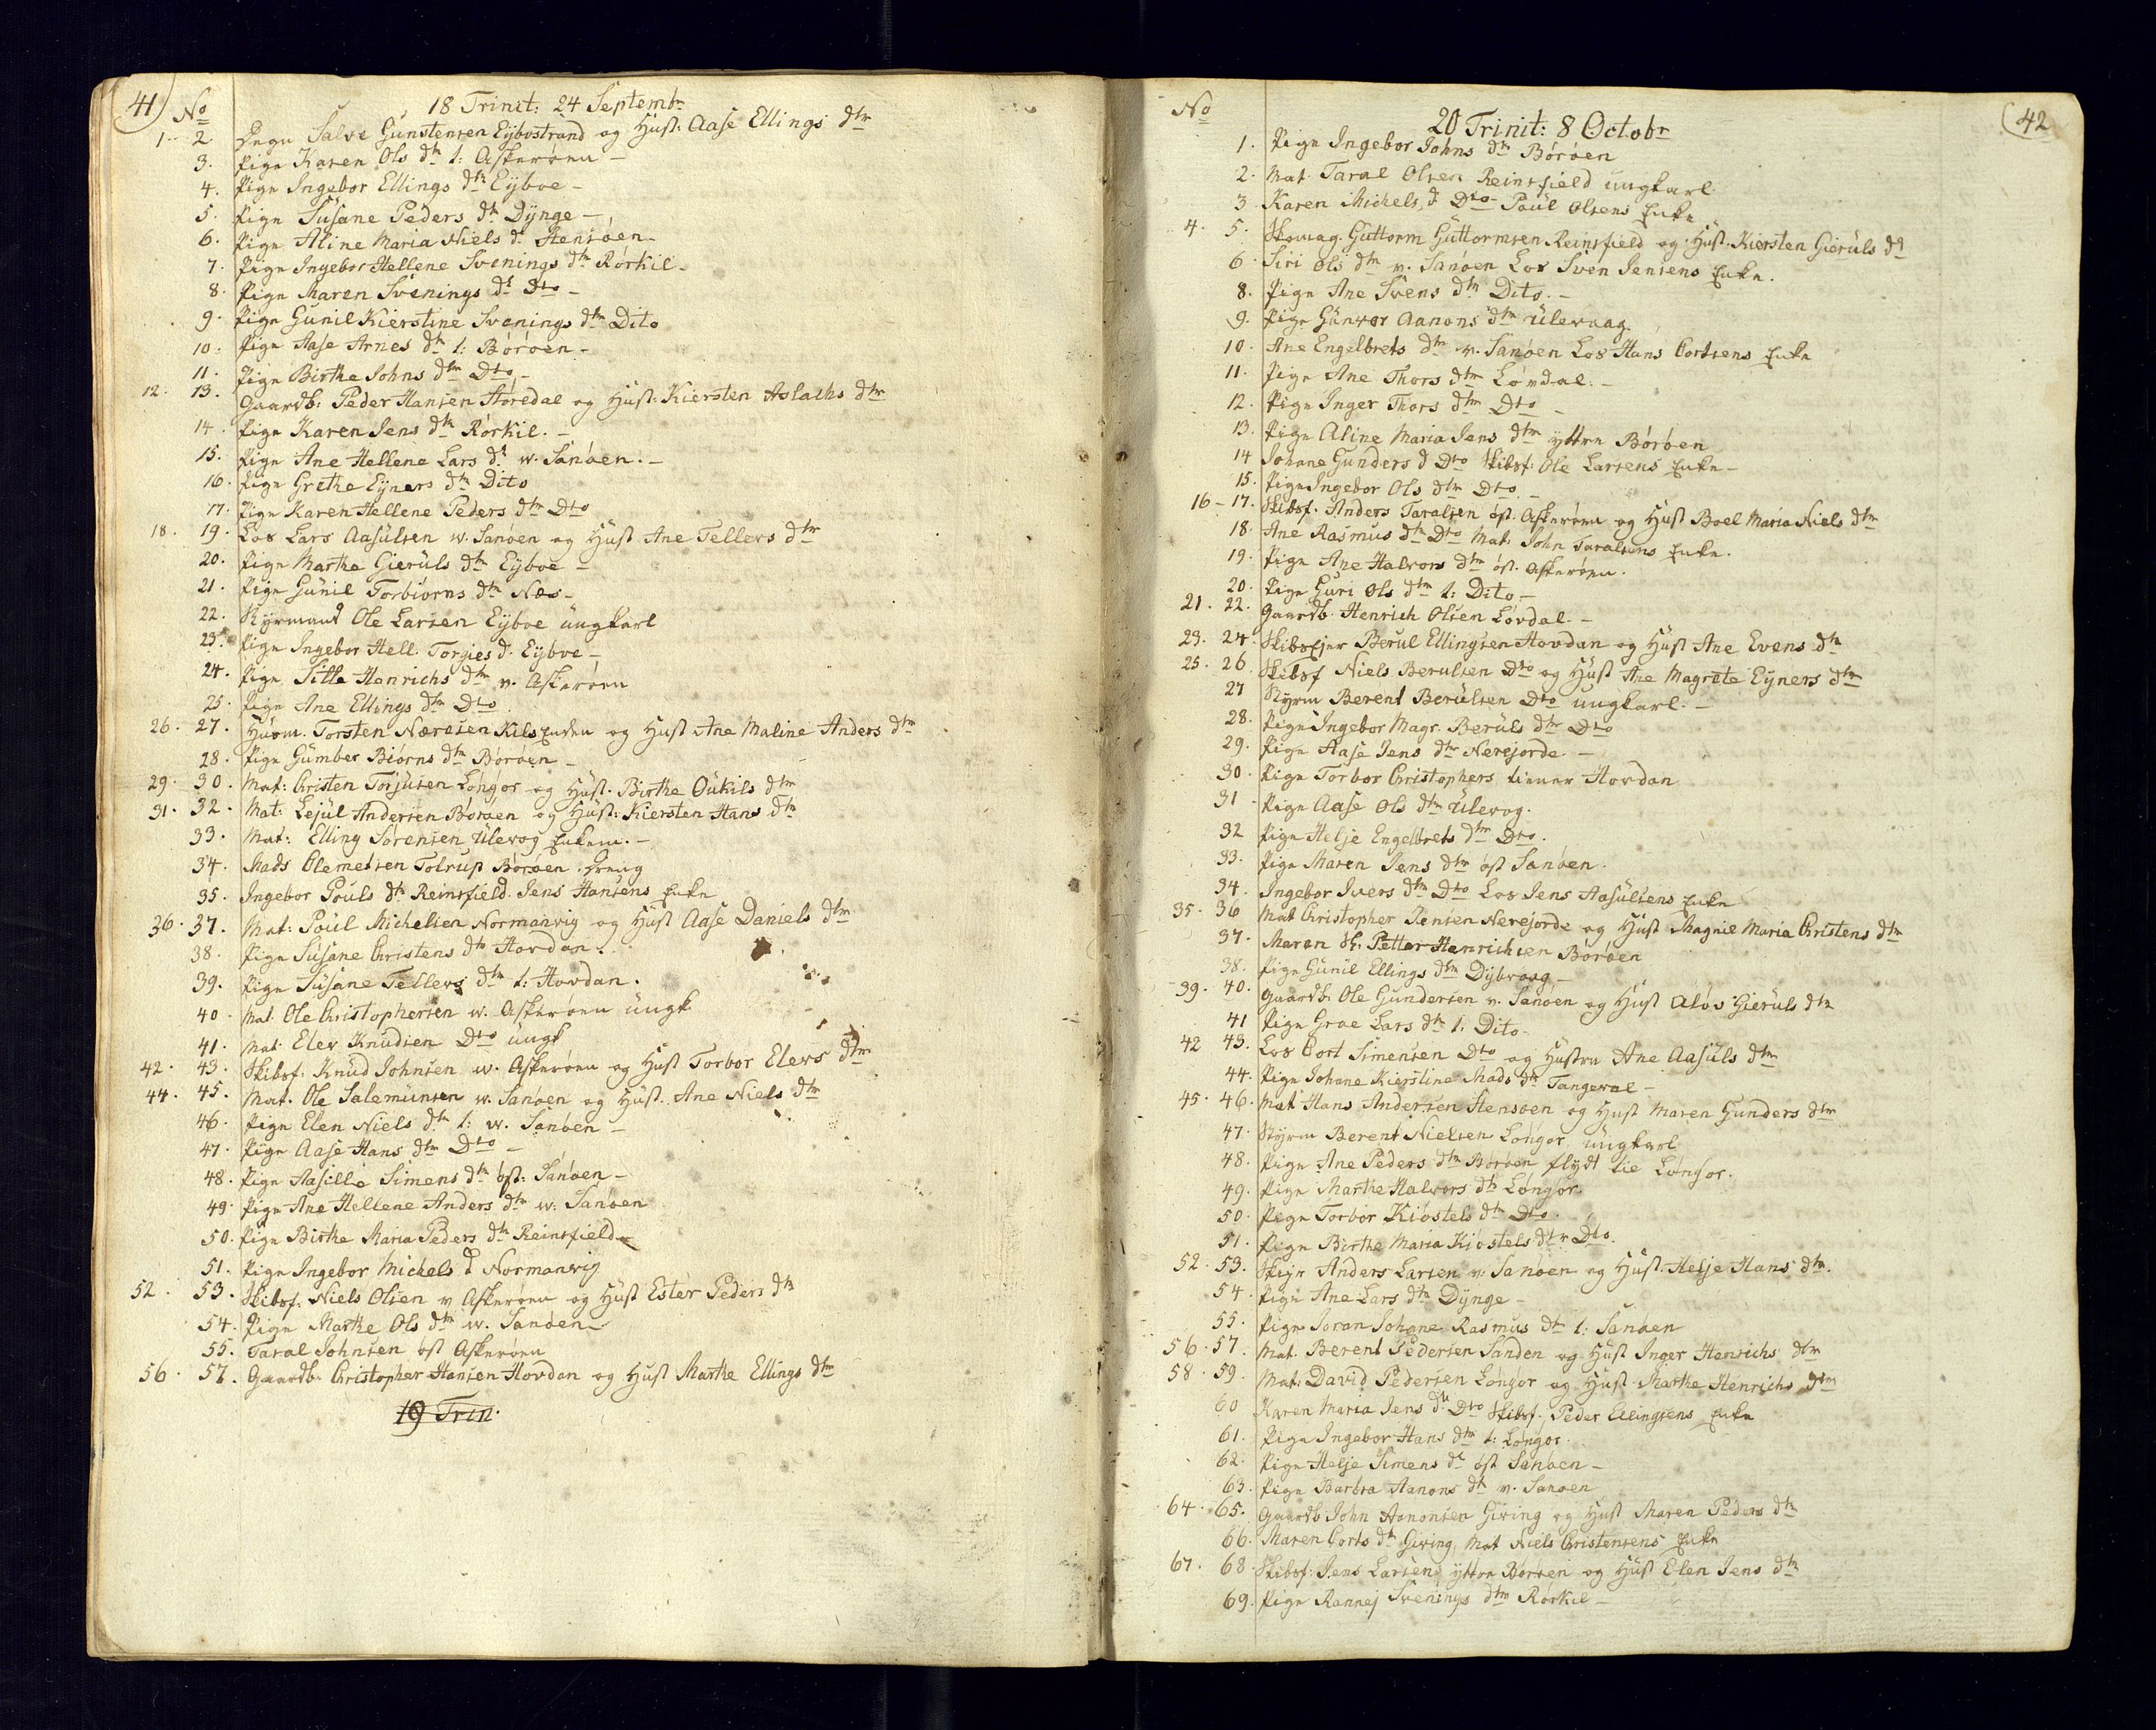 41 No 18 Trinit: 24 Septembr
1 - 2 Degn Salve Gunstensen Eÿbostrand og Hust: Aase Ellings dtr
3. Pige Karen Ols dtr l: Askerøen -
4. Pige Ingebor Ellings dtr Eÿboe -
5. Pige Susane Peders dtr Dÿnge -
6. Pige Aline Maria Niels d. Stensøen -
7. Pige Ingebor Hellene Svenings dtr Rørkil -
8. Pige Maren Svenings dtr Dto -
9. Pige Gunil Kierstine Svenings dtr Dito
10. Pige Aase Arnes dtr l: Børøen -
11. Pige Birthe Johns dtr Dto -
12. 13. Gaardb: Peder Hansen Støredal og Hust: Kiersten Aslachs dtr
14. Pige Karen Jens dtr Rørkil. -
15. Pige Ane Hellene Lars dtr w. Sanøen. -
16. Pige Grethe Eÿners dtr Dito
17. Pige Karen Hellene Peders dtr Dto
18. 19. Los Lars Aasulsen w. Sanøen og Hust Ane Tellevs dtr
20. Pige Marthe Gieruls dtr Eÿboe -
21. Pige Gunil Torbiørns dtr Næs -
22. Styrmand Ole Larsen Eÿboe ungkarl
23. Pige Ingebor Hell. Torjies d. Eÿboe -
24. Pige Sille Henrichs dtr v. Askerøen
25. Pige Ane Ellings dtr Dto
26. 27. Husm. Torsten Næresen Kilsenden og Hust Ane Maline Anders dtr
28. Pige Gumber Biørns dtr Børøen -
29. 30. Mat: Christen Torjusen Løngør og Hust. Birthe Oukils dtr
31. 32. Mat: Lejul Andersen Børøen og Hust: Kiersten Hans dtr
33. Mat: Elling Sørensen Ulevog Enkem. -
34. Mads Clemetsen Tolrup Børøen Dreng
35. Ingebor Pouls dtr Reinsfield Jens Hansens Enke
36. 37. Mat: Poul Michelsen Normanvig og Hust Aase Daniels dtr
38. Pige Susane Christens dtr Hovdan.
39. Pige Susane Tellevs dtr l: Hovdan.
40. Mat. Ole Christophersen w. Askerøen ungk
41. Mat. Elev Knudsen Dto ungk
42. 43. Skibsf. Knud Johnsen w. Askerøen og Hust Torbor Elevs dtr
44. 45. Mat. Ole Salemunsen w. Sanøen og Hust. Ane Niels dtr
46. Pige Elen Niels dtr l: w. Sanøen -
47. Pige Aase Hans dtr Dto -
48. Pige Aasille Simens dtr øst: Sanøen -
49. Pige Ane Hellene Anders dtr w: Sanøen
50. Pige Birthe Maria Peders dtr Reinsfield
51. Pige Ingebor Michels d Normanvig
52. 53. Skibsf. Niels Olsen v Askerøen og Hust Ester Peders dtr
54. Pige Marthe Ols dtr w. Sanøen -
55. Taral Johnsen øst Askerøen
56. 57. Gaardb. Christopher Hansen Hovdan og Hust Marthe Ellings dtr
19 Trin.
No 20 Trinit: 8 Octobr 42
1. Pige Ingebor Johns dtr Børøen
2. Mat. Taral Olsen Reinsfield ungkarl.
3. Karen Michels d Dto Poul Olsens Enke
4. 5. Skomag. Guttorm Guttormsen Reinsfield og Hust. Kiersten Gieruls dtr
6. Siri Ols dtr v. Sanøen Los Sven Jensens Enke.
8. Pige Ane Svens dtr Dito. -
9. Pige Gunvor Aanons dtr Ulevaag.
10. Ane Engelbrets dtr v. Sanøen Los Hans Cortsens Enke
11. Pige Ane Thors dtr Løvdal. -
12. Pige Inger Thors dtr Dto -
13. Pige Aline Maria Jens dtr yttre Børøen
14 Johane Gunders d Dto Skibsf. Ole Larsens Enke -
15. Pige Ingebor Ols dtr Dto -
16 - 17. Skibsf. Anders Taralsen øst. Askerøen og Hust Boel Maria Niels dtr
18. Ane Rasmus dtr Dto Mat. John Taralsens Enke.
19. Pige Ane Halvors dtr øst. Askerøen.
20. Pige Guri Ols dtr l: Dito -
21. 22. Gaardb. Henrich Olsen Løvdal. -
23. 24. Skibsejer Berul Ellingsen Hovdan og Hust Ane Evens dtr
25. 26. Skibsf Niels Berulsen Dto og Hust Ane Magrete Eÿners dtr
27 Styrm Berent Berulsen Dto ungkarl. -
28. Pige Ingebor Magr. Beruls dtr Dto
29. Pige Aase Jens dtr Nerejorde -
30. Pige Torbor Christophers tiener Hovdan
31 Pige Aase Ols dtr Ulevog.
32 Pige Helje Engelbrets dtr Dto.
33. Pige Maren Jens dtr øst Sanøen.
34. Ingebor Ivers dtr Dto Los Jens Aasulsens Enke
35. 36 Mat Christopher Jensen Nerejorde og Hust Magnil Maria Christens dtr
37. Maren Petter Henrichsen Børøen
38. Pige Gunil Ellings dtr Dÿbvaag -
39. 40. Gaardb. Ole Gundersen v. Sanøen og Hust Aløv Gieruls dtr
41 Pige Groe Lars dtr l. Dito
42 43. Los Cort Simensen Dto og Hustru Ane Aasuls dtr
44. Pige Johane Kierstine Mads dtr Tangeval -
45. 46. Mat Hans Andersen Stensøen og Hust Maren Gunders dtr
47. Styrm Berent Nielsen Løngør ungkarl
48. Pige Ane Peders dtr Børøen flydt til Løngør.
49. Pige Marthe Halvors dtr Løngør.
50. Pige Torbor Kiøstels dtr Dto.
51. Pige Birthe Maria Kiøstels dtr Dto.
52. 53. Anders Larsen v. Sanøen og Hust. Helje Hans dtr.
54. Pige Ane Lars dtr Dÿnge -
55. Pige Søran Johane Rasmus dtr l: Sanøen
56. 57. Mat. Berent Pedersen Sanden og Hust Inger Henrichs dtr
58. 59. Mat: David Pedersen Løngør og Hust. Marthe Henrichs dtr
60 Karen Maria Jens d. Dto Skibsf. Peder Ellingsens Enke
61. Pige Ingebor Hans dtr l: Løngør.
62. Pige Helje Simens dtr øst Sanøen -
63. Pige Barbra Aanons dtr v. Sanøen
64. 65. Gaardb John Aanonsen Giving og Hust Maren Peders dtr
66. Maren Corts dtr Giving Mat Niels Christensens Enke
67. 68. Skibsf: Jens Larsen yttre Børøen og Hust Elen Jens dtr
69. Pige Rannej Svenings dtr Rørkil -